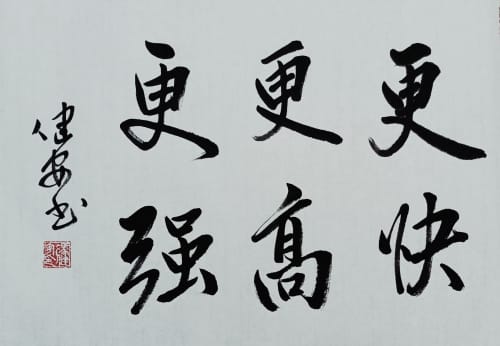 更快
更高
更强
健安书